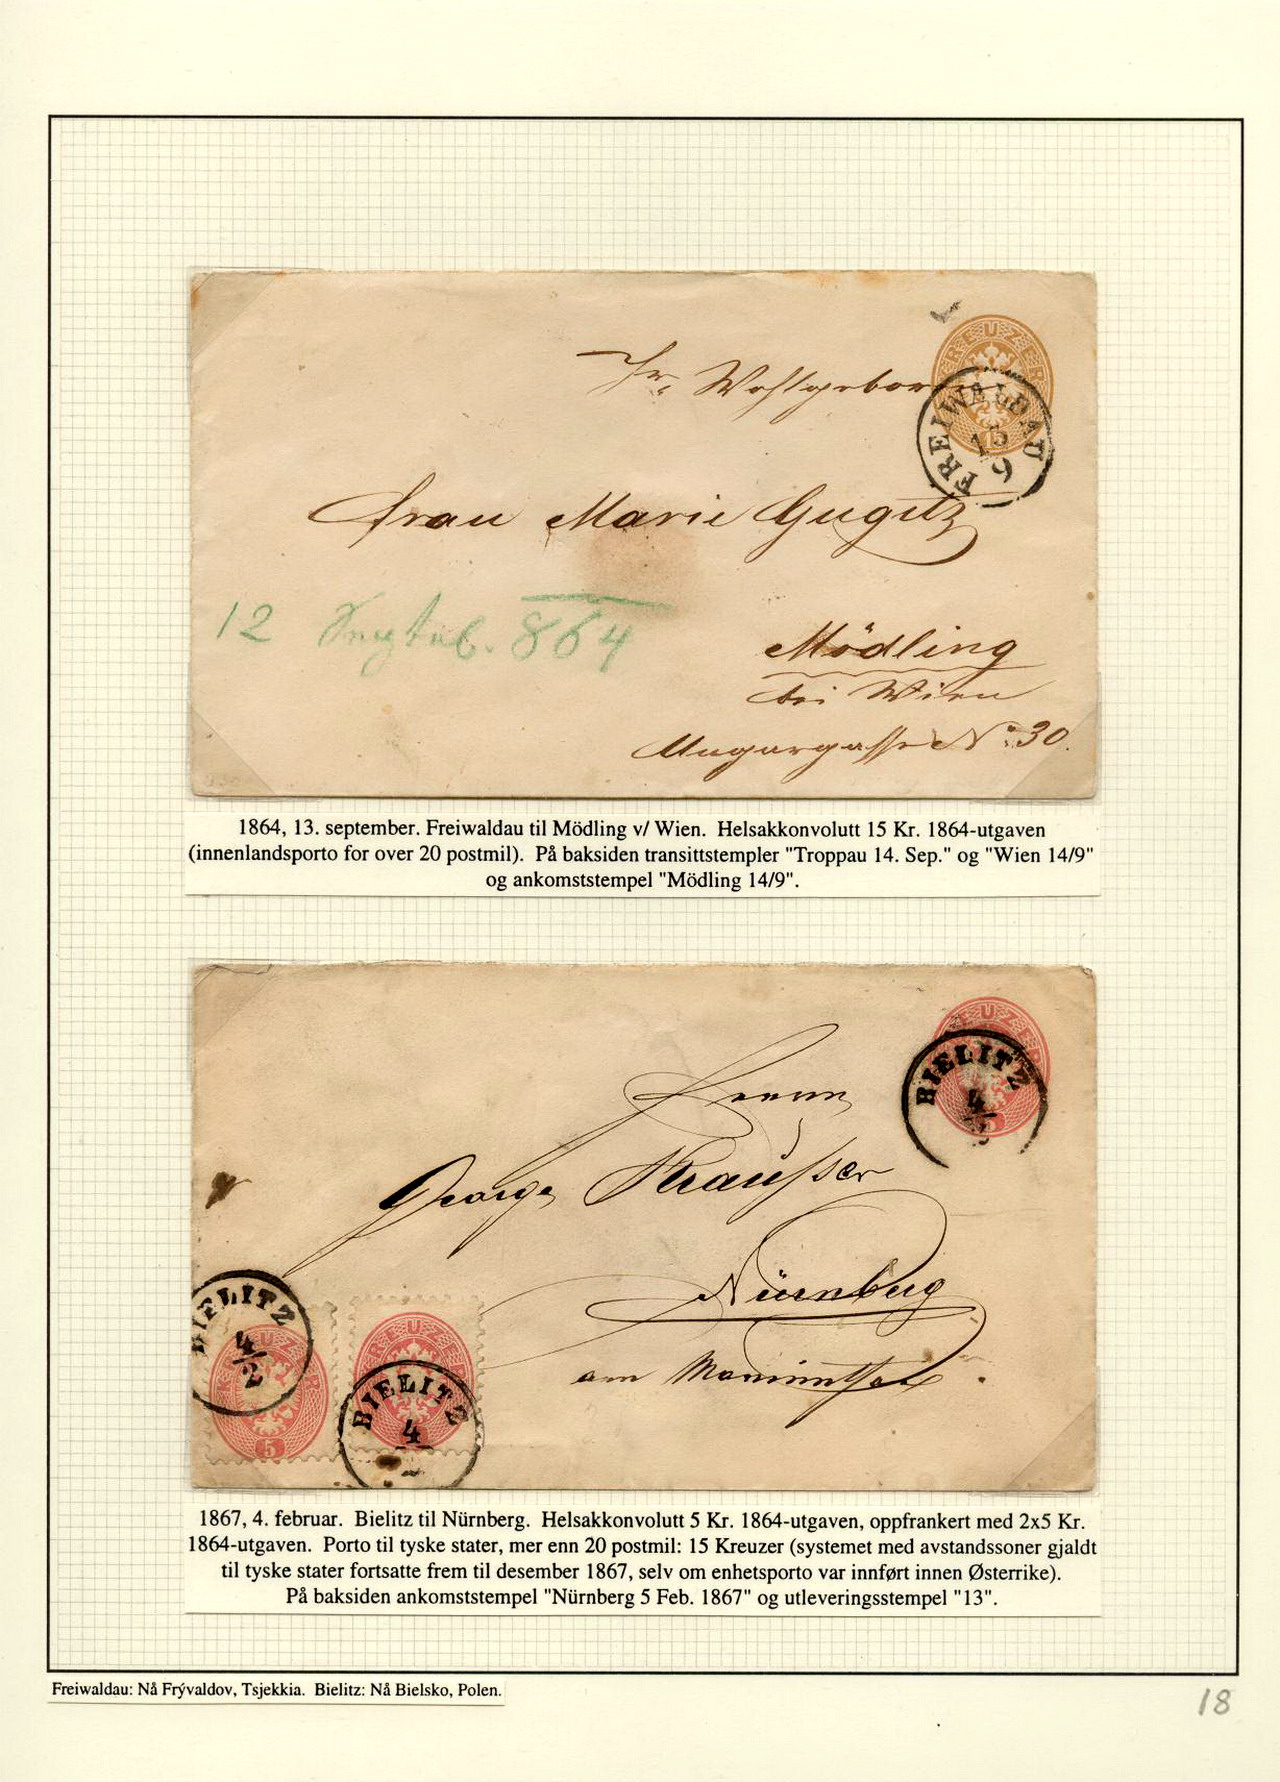 KREUZER
15
FREIWALDAU
Wohlgeboren
Frau Marie Gugitz
12 864
Mödling
bei Wien
Ungargasse No 30.
1864, 13. september. Freiwaldau til Mödling v/ Wien. Helsakkonvolutt 15 Kr. 1864-utgaven
(innenlandsporto for over 20 postmil). På baksiden transittstempler "Troppau 14. Sep." og "Wien 14/9"
og ankomststempel "Mödling 14/9".
KREUZER
BIELITZ
4
Herrn
George Kraußer
Nürnberg
BIELITZ
4/2
KREUZER
5
KREUZER
BIELITZ
4
1867, 4. februar. Bielitz til Nürnberg. Helsakkonvolutt 5 Kr. 1864-utgaven, oppfrankert med 2x5 Kr.
1864-utgaven. Porto til tyske stater, mer enn 20 postmil: 15 Kreuzer (systemet med avstandssoner gjaldt
til tyske stater fortsatte frem til desember 1867, selv om enhetsporto var innført innen Østerrike).
På baksiden ankomststempel "Nürnberg 5 Feb. 1867" og utleveringsstempel "13".
Freiwaldau: Nå Frývaldov, Tsjekkia. Bielitz: Nå Bielsko, Polen.
18